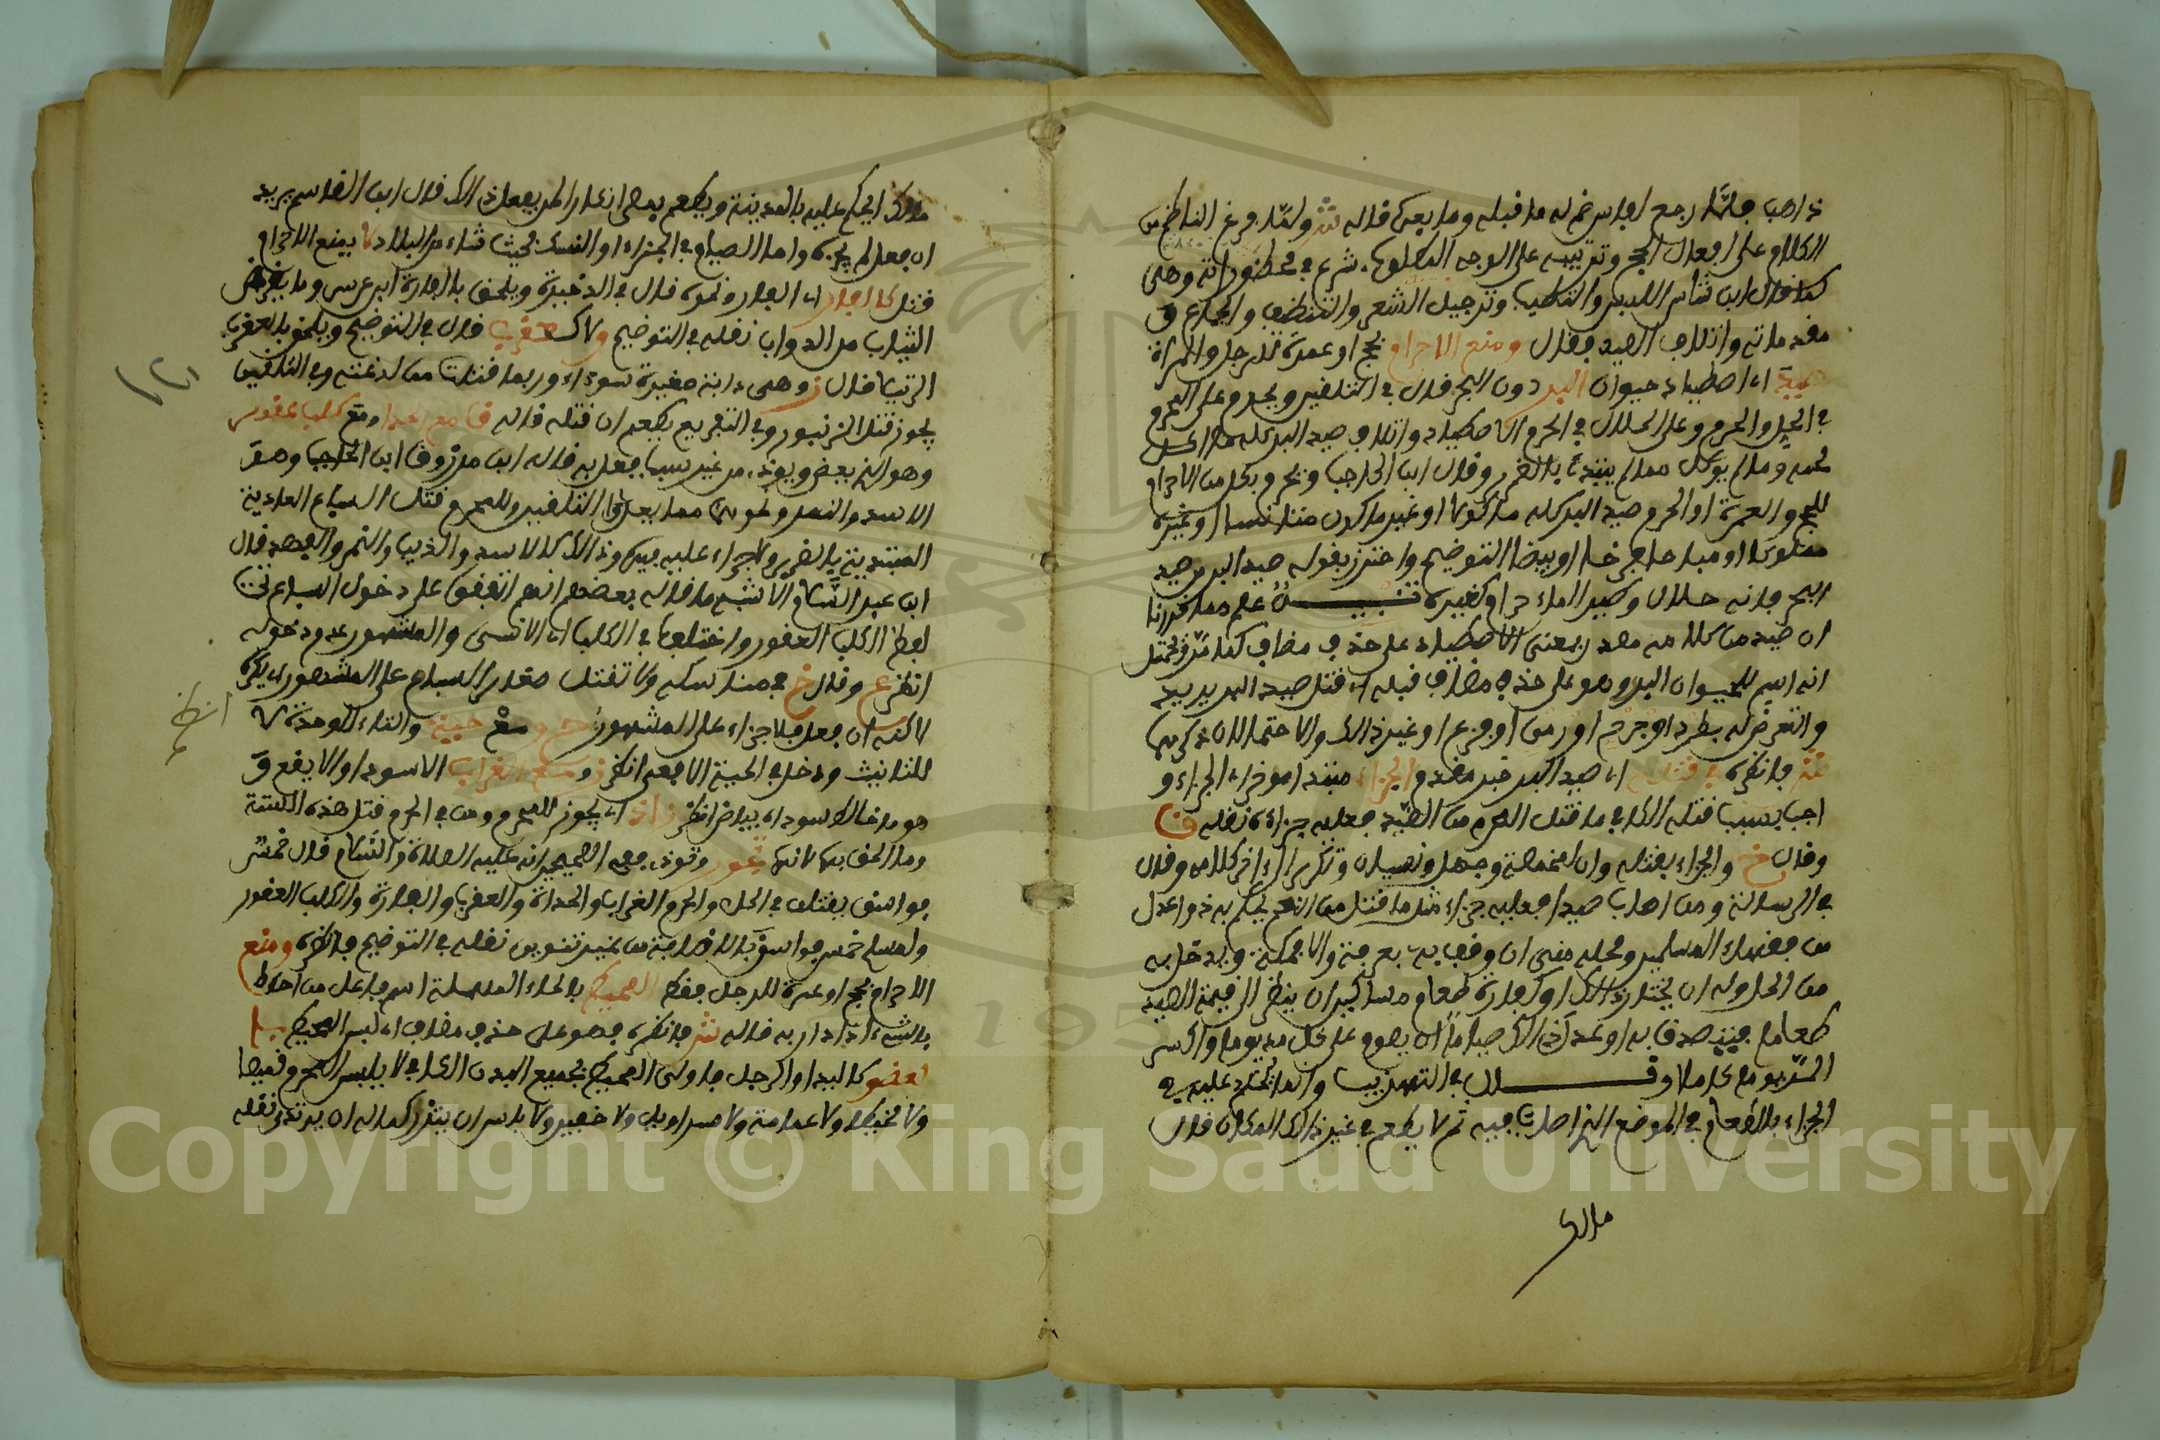 ذاهب جائيا رجع لفارس ثم له ما قبله وما بعده قاله ش ولما فرغ الناظم من
الكلام على افعال الحج وترتيبه على الوجه المطلوب شرع في محظوراته وهي
كما قال ابن شاس اللبس والتطيب وترجيل الشعر والتنظف والجماع و
مقدماته واتلاف الصيد فقال ومنع الاحرام بحج او عمرة للرجل والمراة
صيد اي اصطياد حيوان البر دون البحر قال في التلقين ويحرم على المحرم
في الحل والحرم وعلى الحلال في الحرم الاصطياد واتلاف صيد البر كله ما اكل
لحمه وما لم يوكل مما لم يبتدئ بالضرر وقال ابن الحاجب ويحرم بكل من الاحرام
للحج والعمرة او الحرم صيد البر كله ماكولا او غير ماكول متانسا او غيره
مملوكا او مباحا فرخا او بيضا التوضيح واحترز بقوله صيد البر من صيد
البحر فانه حلال وصيد الماء حرام وكغيره تنبيه علم مما قررنا
ان صيد من كلامه مصدر بمعنى الاصطياد على حذف مضاف كما مر ويحتمل
انه اسم للحيوان البر وهو على حذف مضاف قبله اي قتل صيد البر يريد
والتعرض له بطرد او جرح او رمي او فزع او غير ذلك والاحتمالان ذكرهما
ش فانظره في قتله اي صيد البر خبر مقدم الجزاء مبتدا موخر اي الجزاء و
اجب بسبب قتله الكافي ما قتل المحرم من الصيد فعليه جزاءه نقله ق
وقال خ والجزاء بقتله وان لمخمصة وجهل ونسيان وتكرر الى اخر كلامه وقال
في الرسالة ومن اصاب صيدا فعليه جزاء مثل ما قتل من النعم يحكم به ذوا عدل
من فقهاء المسلمين ومحله منى ان وقف به بعرفة والا فمكة ويدخل به
من الحل وله ان يختار ذلك او كفارة طعام مساكين ان ينظر الى قيمة الصيد
طعاما فيتصدق به او عدل ذلك صياما ان يصوم عن كل مد يوما ولكسر
المد يوما كاملا وقال في التهذيب وانما يحكم عليه في
الجزاء بالطعام في الموضع الذي اصاب فيه ثم لا يطعم في غير ذلك المكان قال
مالك
مالك ايحكم عليه بالمدينة ويطعم بمصر انكارا لمن يفعل ذلك قال ابن القاسم يريد
ان فعل لم يجزه واما الصيام في الجزاء او النسك فحيث شاء من البلاد لا يمنع الاحرام
قتل كالفار اي الفار ونحوه قال في الذخيرة ويلحق بالفارة ابن عرس وما يقرض
الثياب من الدواب نقله في التوضيح ولا كعقرب قال في التوضيح ويلحق بالعقرب
الرتيلا قال ز وهي دابة صغيرة سوداء وربما قتلت من لدغته وفي التلقين
يجوز قتل الزنبور وفي التفريع يطعم ان قتله قاله ق مع الحدا ومع كلب عقور
وهو الذي يعض ويوذي من غير سبب فعل به قاله ابن مرزوق ابن الحاجب وهو
الاسد والنمر ونحوهما مما يعدو التلقين وللمحرم قتل السباع العادية
المبتدية بالضرر ولا جزاء عليه فيه وذلك كالاسد والذيب والنمر والفهد قال
ابن عبد السلام الاشبه ما قاله بعضهم انهم اتفقوا على دخول السباع تحت
لفظ الكلب العقور واختلفوا في الكلب اي الانسي والمشهور عدم دخوله
انظر ع وقال خ في مناسكه ولا تقتل صغار السباع على المشهور اي يكره
لاكنه ان فعل فلا جزاء على المشهور ومع حية والتاء للوحدة لا
للتانيث ودخل في الحية الافعى انظر ز ومع الغراب الاسود او الابقع و
هو ما خالط سواده بياض انظر ز اذ اي يجوز للمحرم ومن في الحرم قتل هذه الستة
وما الحق بها لانها تجور وتوذي ففي الصحيح انه عليه الصلاة والسلام قال خمس
فواسق يقتلن في الحل والحرم الغراب والحداة والعقرب والفارة والكلب العقور
ولمسلم خمس فواسق بالاضافة من غير تنوين نقله في التوضيح فانظره ومنع
الاحرام بحج او عمرة للرجل فقط المحيط بالحاء المهملة اسم فاعل من احاط
بالشيء اذا دار به قاله ش فانظره فهو على حذف مضاف اي لبس المحيط بال
عضو كاليد او الرجل فاولى المحيط بجميع البدن الكافي لا يلبس المحرم قميصا
ولا مخيطا ولا عمامة ولا سراويل ولا خفين ولا باس ان يتزر كما له ان يرتدي نقله
انظر